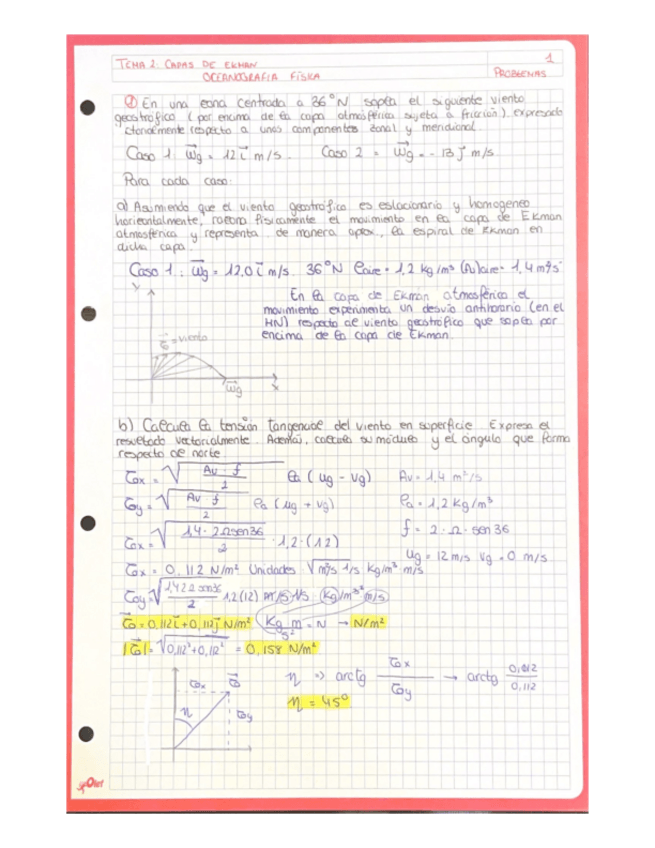 TEMA 2: CAPAS DE EKMAN
OCEANOGRAFÍA FÍSICA
1
PROBLEMAS
① En una zona centrada a 36°N sopla el siguiente viento
geostrófico (por encima de la capa atmosférica sujeta a fricción), expresado
respecto a unas componentes zonal y meridional.
Caso 1: Wg = 12 i m/s. Caso 2 = Wg = - 13 j m/s
Para cada caso:
a) Asumiendo que el viento geostrófico es estacionario y homogeneo
horizontalmente, razona físicamente el movimiento en la capa de Ekman
atmosférica y representa de manera aprox., la espiral de Ekman en
dicha capa.
Caso 1: Wg = 12,0 i m/s. 36°N ρaire = 1,2 kg/m³ (Av)aire = 1,4 m²/s
En la capa de Ekman atmosférica el
movimiento experimenta un desvío antihorario (en el
HN) respecto al viento geostrófico que sopla por
encima de la capa de Ekman.
y
τ = viento
Wg
x
b) Calcula la tensión tangencial del viento en superficie. Expresa el
resultado vectorialmente. Además, calcula su módulo y el ángulo que forma
respecto al norte.
τox = √(Av · f / 2) ρa (ug - vg) Av = 1,4 m²/s
τoy = √(Av · f / 2) ρa (ug + vg) ρa = 1,2 kg/m³
f = 2 · Ω · sen 36
τox = √(1,4 · 2 Ω sen36 / 2) · 1,2 · (12)
ug = 12 m/s vg = 0 m/s
τox = 0,112 N/m² Unidades √m²/s 1/s kg/m³ m/s
τoy = √(1,4 2 Ω sen36 / 2) 1,2 (12) m²/s 1/s · kg/m³ m/s
τo = 0,112 i + 0,112 j N/m² kg m/s² = N → N/m²
|τo| = √0,112² + 0,112² = 0,158 N/m²
η => arctg τox / τoy → arctg 0,012 / 0,112
η = 45°
τox τo
η τoy